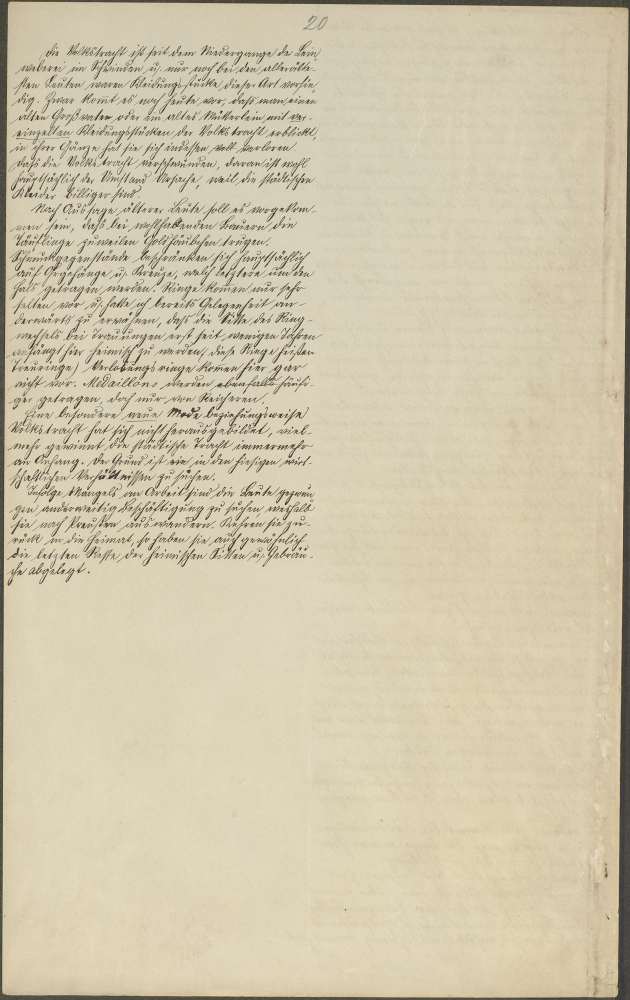 20
Die Volkstracht ist seit dem Niedergange der Lein
weberei im Schwinden u. nur noch bei den allerälte-
sten Leuten waren Kleidungsstücke dieser Art vorfin
dig. Zwar komt es noch heute vor, daß man einen
alten Großvater oder ein altes Mütterlein mit ver-
einzelten Kleidungsstücken der Volkstracht erblickt,
in ihrer Gänze hat sie sich indessen voll verloren.
Daß die Volkstracht verschwunden, daran ist wohl
hauptsächlich der Umstand Ursache, weil die städtischen
Kleider billiger sind.
Nach Aussage älterer Leute soll es vorgekom-
men sein, daß bei wohlhabenden Bauern die
Täuflinge zuweilen Goldhäubchen trugen.
Schmuckgegenstände beschränken sich hauptsächlich
auf Ohrgehänge u. Kreuze, welch letztere um den
Hals getragen werden. Ringe komen nur sehr
selten vor u. habe ich bereits Gelegenheit an-
derwärts zu erwähnen, daß die Sitte des Ring-
wechsels bei Trauungen erst seit wenigen Jahren
anfängt hier heimisch zu werden (diese Ringe heißen
Treuringe) Verlobungsringe komen hier gar
nicht vor. Medaillons werden ebenfalls häufi-
ger getragen, doch nur von Reicheren.
Eine besondere neue Mode beziehungsweise
Volkstracht hat sich nicht herausgebildet, viel-
mehr gewinnt die städtische Tracht immermehr
an Anhang. Der Grund ist in den hiesigen wirt-
schaftlichen Verhältnissen zu suchen.
Infolge Mangels an Arbeit sind die Leute gezwun
gen anderweitig Beschäftigung zu suchen, weshalb
sie nach Preußen auswandern. Kehren sie zu-
rück in die Heimat, so haben sie auch gewöhnlich
die letzten Reste der heimischen Sitten u. Gebräu-
che abgelegt.